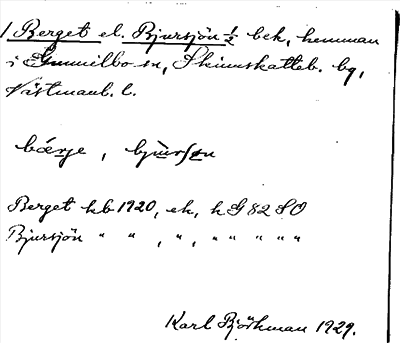 1 Berget el. Bjursjön ½ bek, hemman
i Gunnilbo sn, Skinnskatteb. bg,
Västmanl. l.
bærje, bjursøn
Berget kb 1920, ek, hG82SO
Bjursjön " " , " , " " " " "
Karl Björkman 1929.